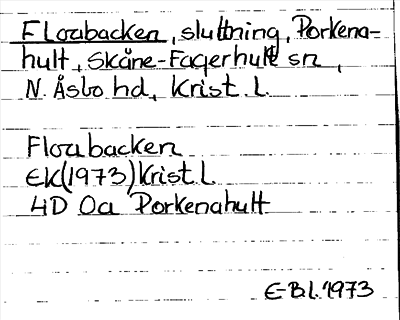 Florabacken, sluttning, Porkena-
hult, Skåne-Fagerhult sn,
N. Åsbo hd, Krist. L.
Florabacken
EK(1973) Krist L
4D Oa Porkenahult
E-B.L. 1973